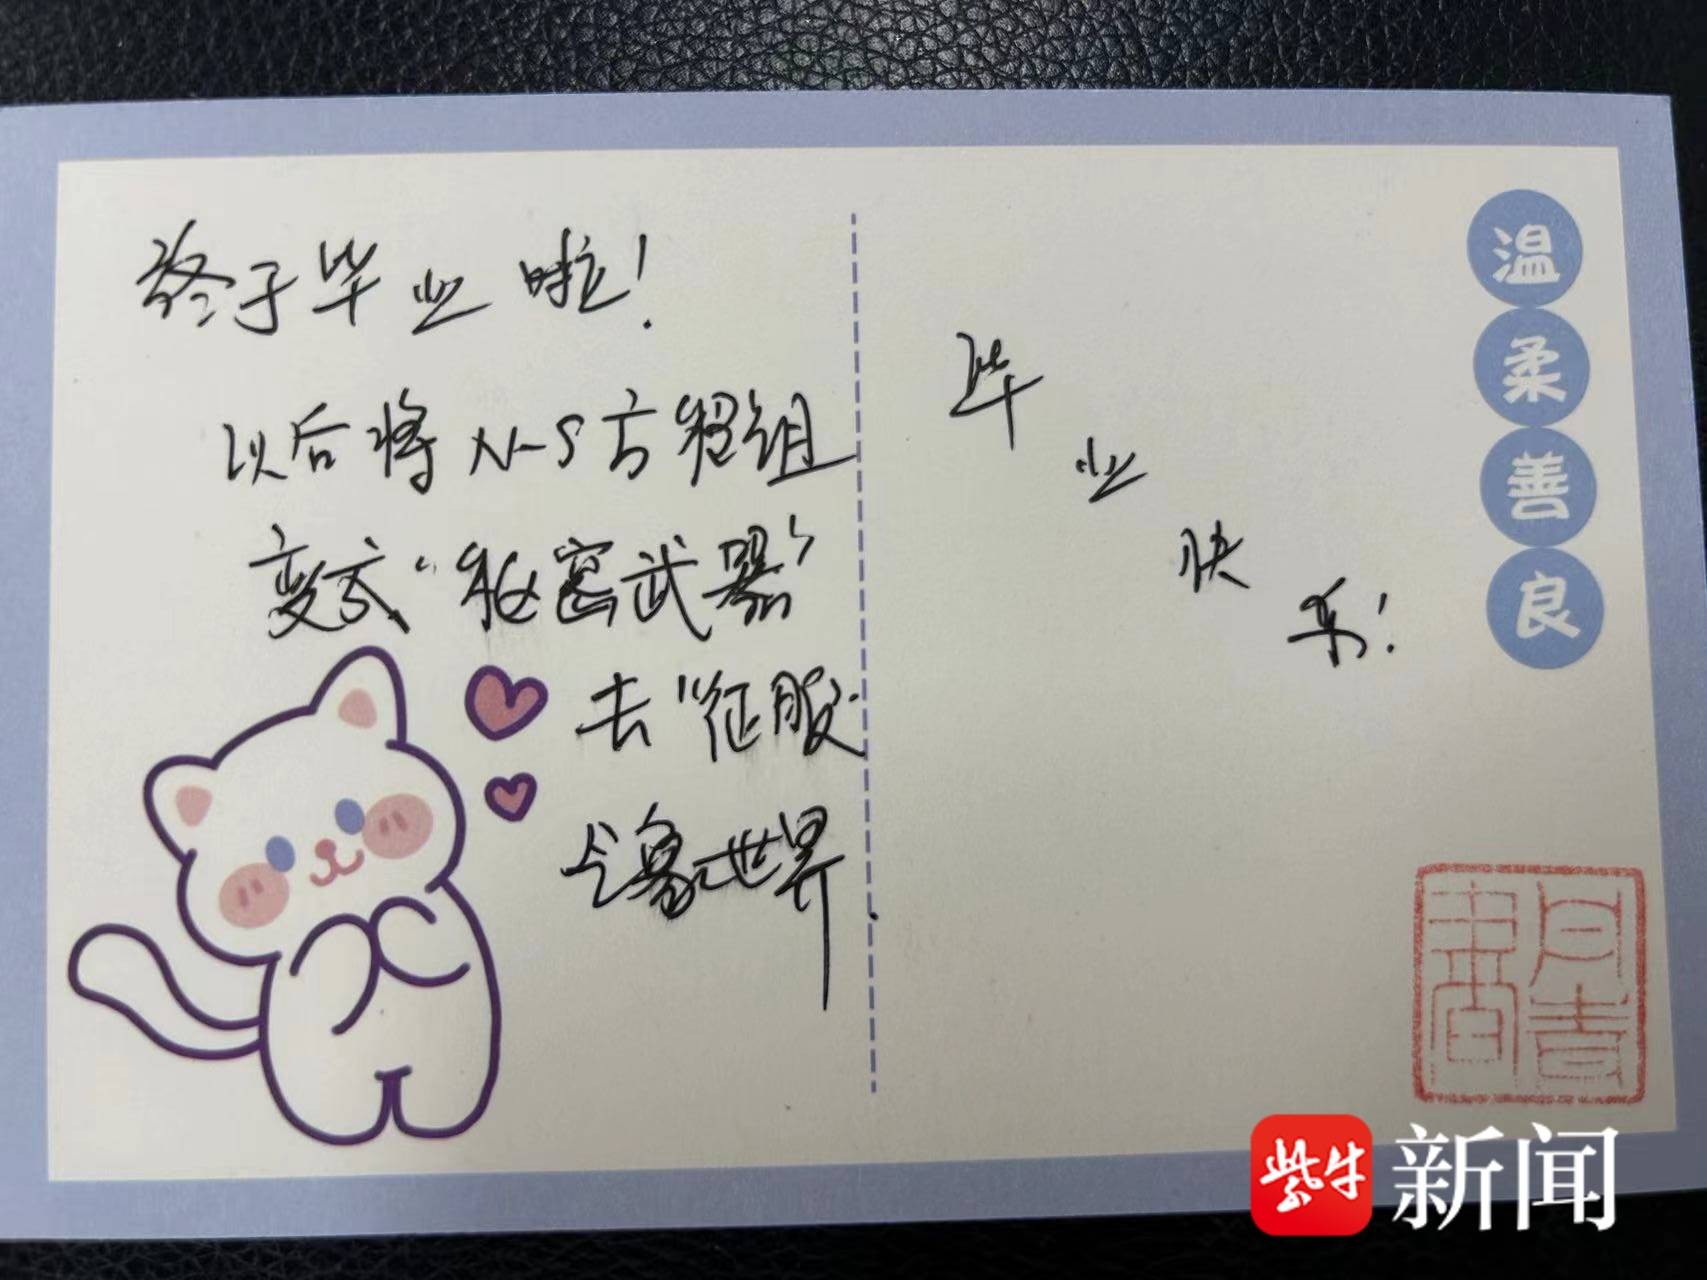 终于毕业啦！
以后将N-S方程组
变成“秘密武器”
去“征服”
气象世界.
毕业快乐！
温柔善良
紫牛新闻